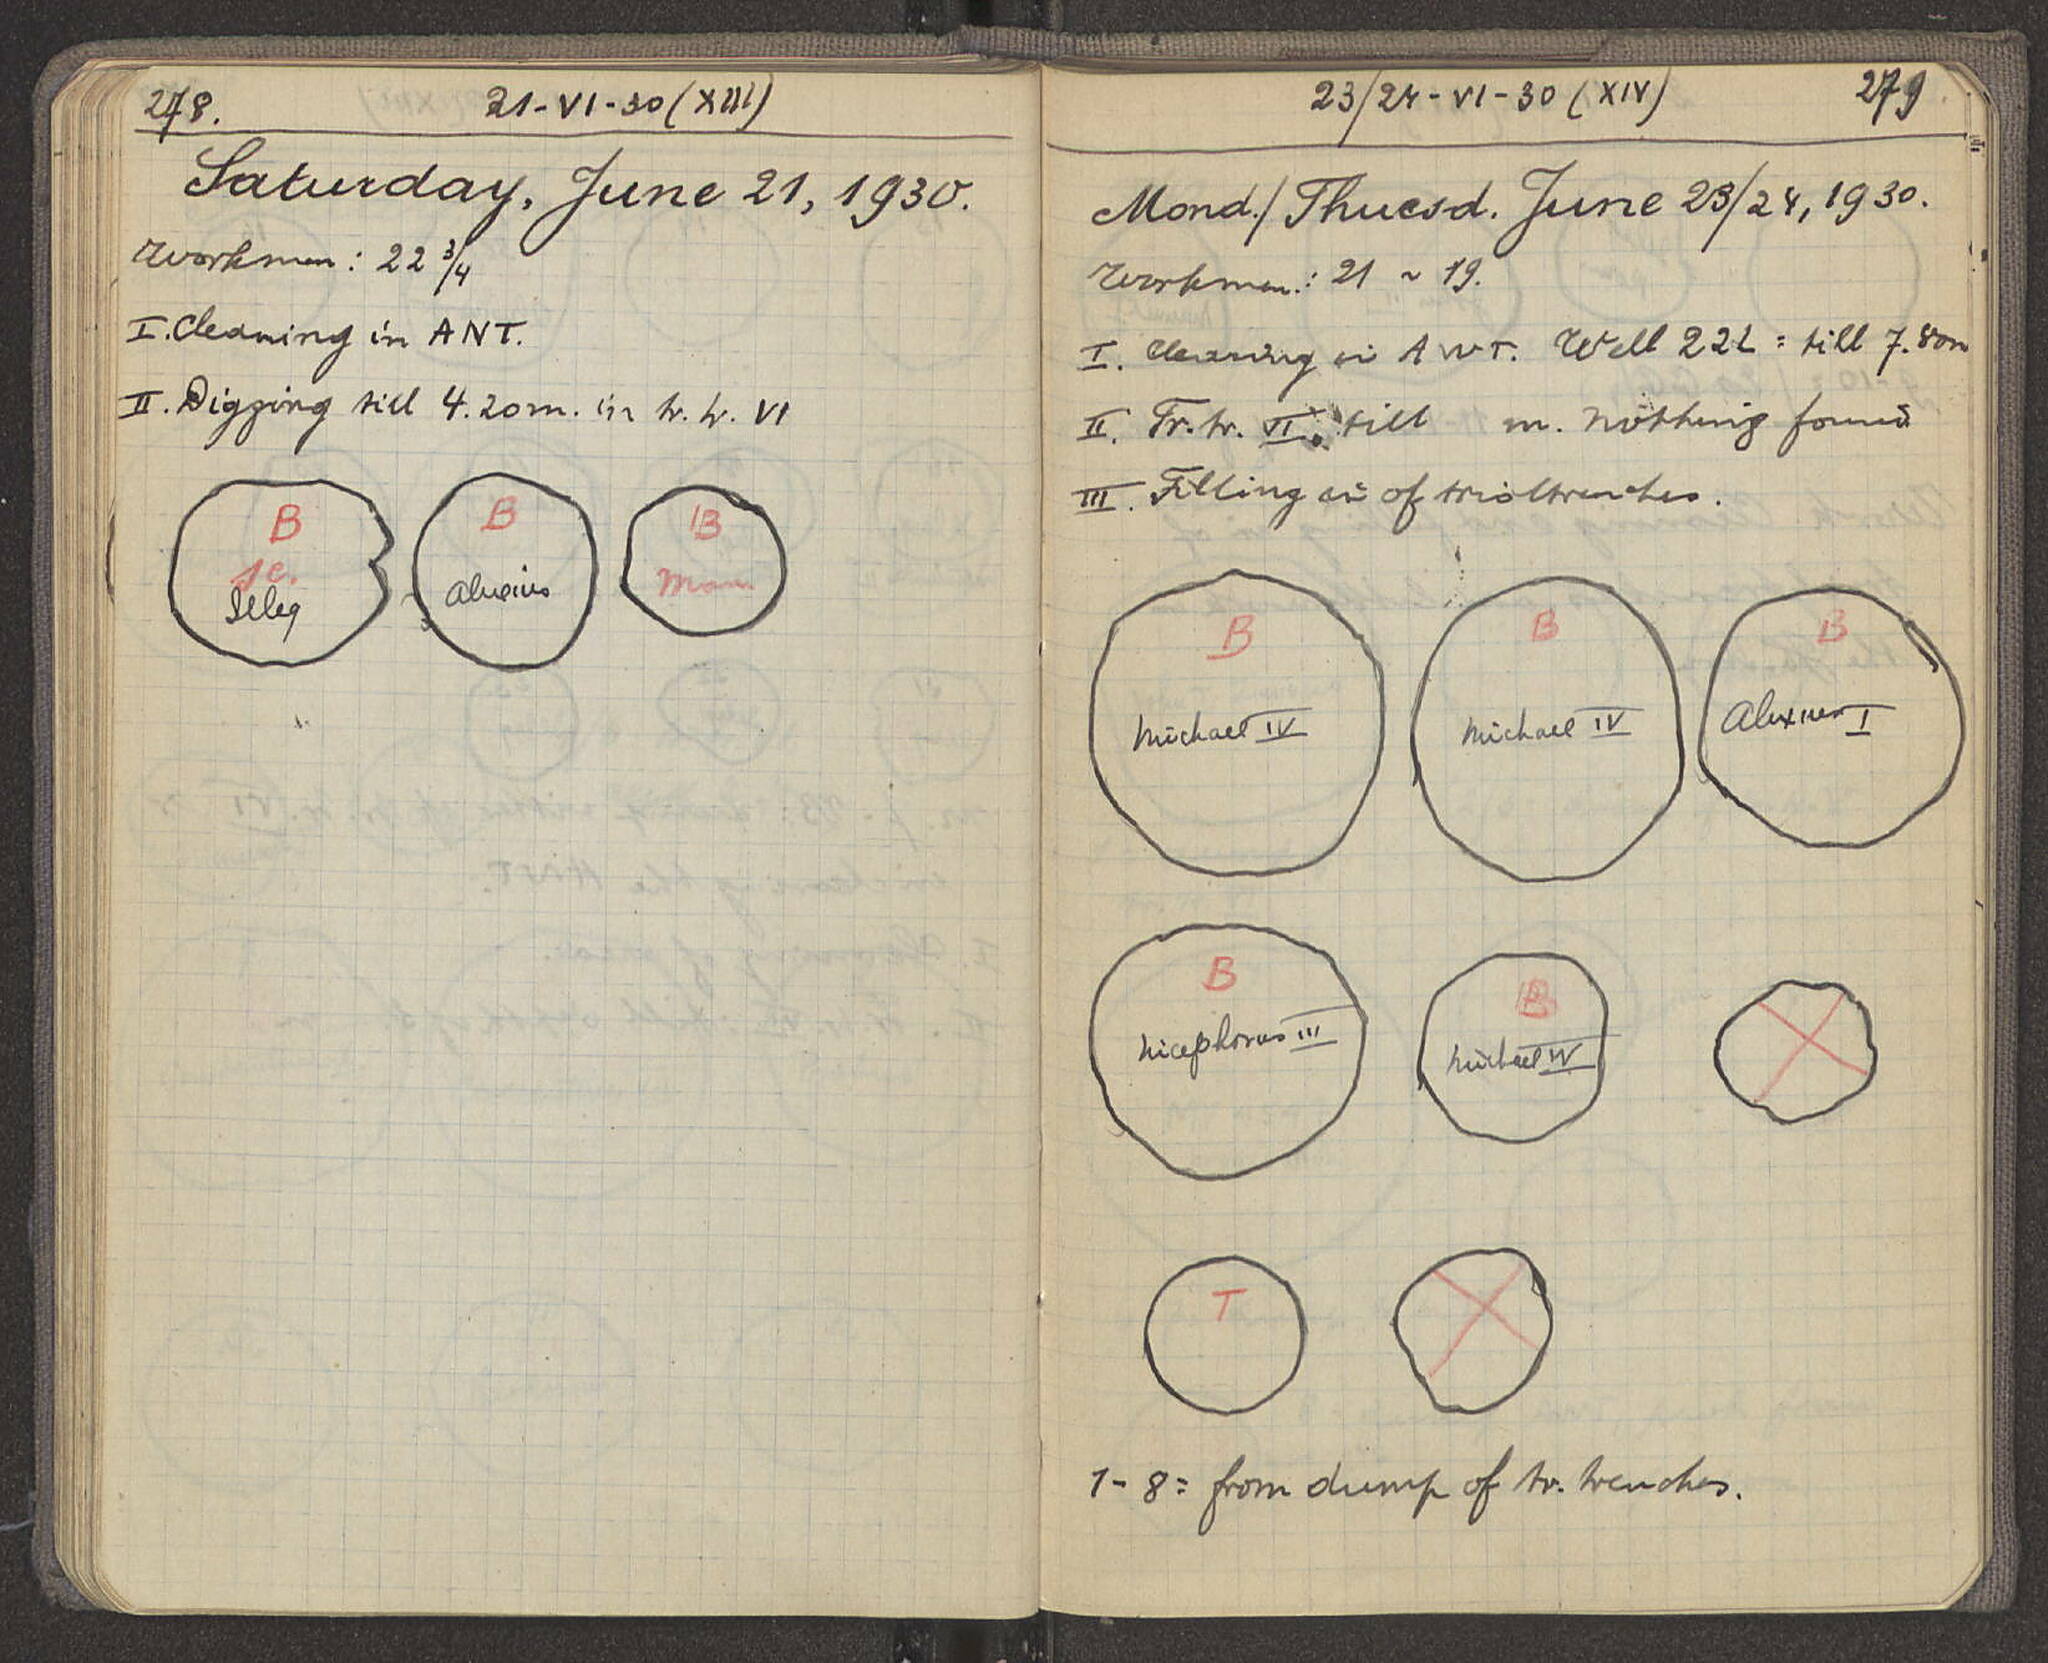 278.
21-VI-30 (XIII)
Saturday, June 21, 1930.
Workmen: 22 3/4
I. Cleaning in ANT.
II. Digging till 4.20m. in tr. tr. VI
B
Seleg
B
Alexius
B
Man.
23/24-VI-30 (XIV)
279
Mond./Thuesd. June 23/24, 1930.
Workmen.: 21 ~ 19.
I. Cleaning in ANT. Well 22L = till 7.80m
II. Tr. tr. VI. till m. nothing found
III. Filling in of trialtrenches.
B
Michael IV
B
Michael IV
B
Alexius I
B
Nicephorus III
B
Michael IV
T
1-8= from dump of tr. trenches.